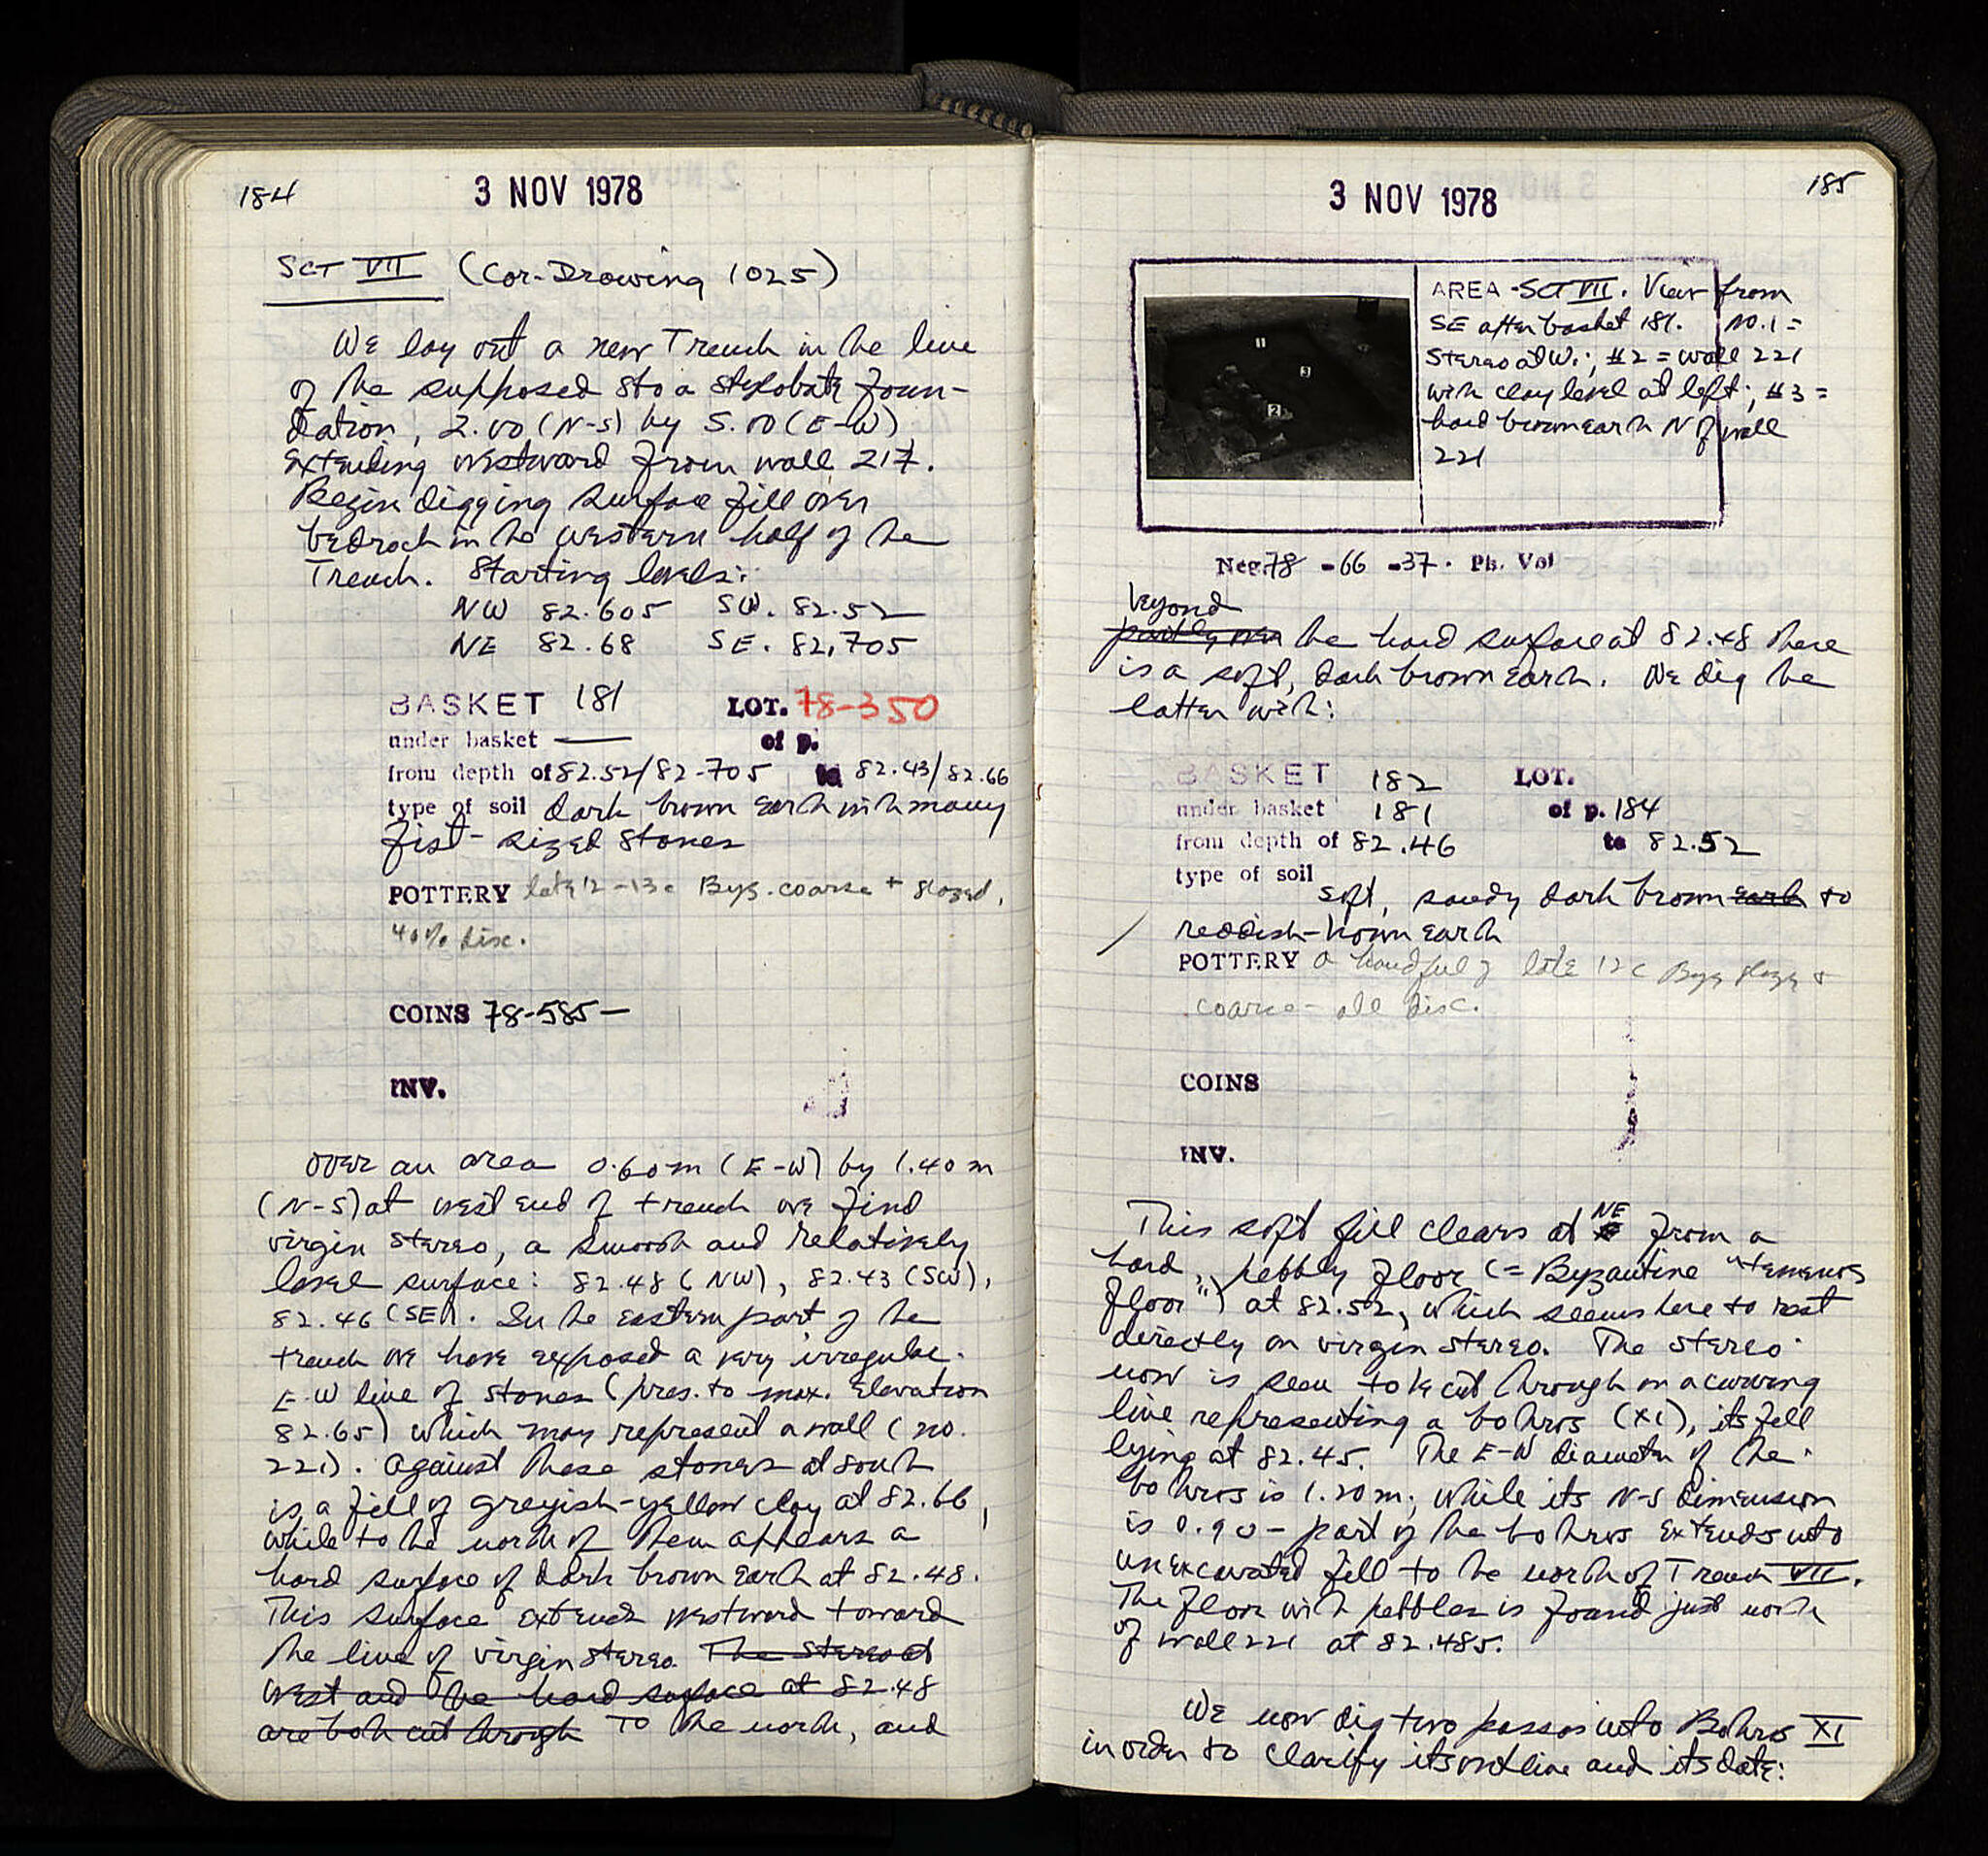 184
3 NOV 1978
SCT VII (Cor-Drawing 1025)
We lay out a new Trench in the line
of the supposed stoa stylobate foun-
dation, 2.00 (N-S) by 5.00 (E-W)
extending westward from wall 217.
Begin digging surface fill over
bedrock in the western half of the
Trench. Starting levels:
NW 82.605 SW. 82.52
NE 82.68 SE. 82.705
BASKET 181 LOT. 78-350
under basket — of p.
from depth of 82.52/82.705 to 82.43/82.66
type of soil dark brown earth with many
fist-sized stones
POTTERY late 12-13c Byz. coarse + glazed,
40% disc.
COINS 78-585—
INV.
Over an area 0.60m (E-W) by 1.40 m
(N-S) at west end of trench we find
virgin stereo, a smooth and relatively
level surface: 82.48 (NW), 82.43 (SW),
82.46 (SE). In the eastern part of the
trench we have exposed a very irregular
E-W line of stones (pres. to max. elevation
82.65) which may represent a wall (no.
221). Against these stones at south
is a fill of greyish-yellow clay at 82.66,
while to the north of them appears a
hard surface of dark brown earth at 82.48.
This surface extends westward toward
the line of virgin stereo. The stereo at
west and the hard surface at 82.48
are both cut through To the north, and
185
3 NOV 1978
AREA - SCT VII. View from
SE after basket 181. No.1 =
stereo at W.; #2 = wall 221
with clay level at left; #3 =
hard brown earth N of wall
221
11
3
2
Neg. 78 -66 -37. Ph. Vol
beyond
partly over the hard surface at 82.48 there
is a soft, dark brown earth. We dig the
latter with:
BASKET 182 LOT.
under basket 181 of p. 184
from depth of 82.46 to 82.52
type of soil
soft, sandy dark brown earth to
reddish-brown earth
POTTERY a handful of late 12c Byz glaze +
coarse - all disc.
COINS
INV.
This soft fill clears at NE from a
hard, pebbly floor (= Byzantine "temenos
floor") at 82.52, which seems here to rest
directly on virgin stereo. The stereo
now is seen to be cut through on a curving
line representing a bothros (XI), its fill
lying at 82.45. The E-W diameter of the
bothros is 1.20 m; while its N-S dimension
is 0.90 - part of the bothros extends into
unexcavated fill to the north of Trench VII.
The floor with pebbles is found just north
of wall 221 at 82.485.
We now dig two passes into Bothros XI
in order to clarify its outline and its date: